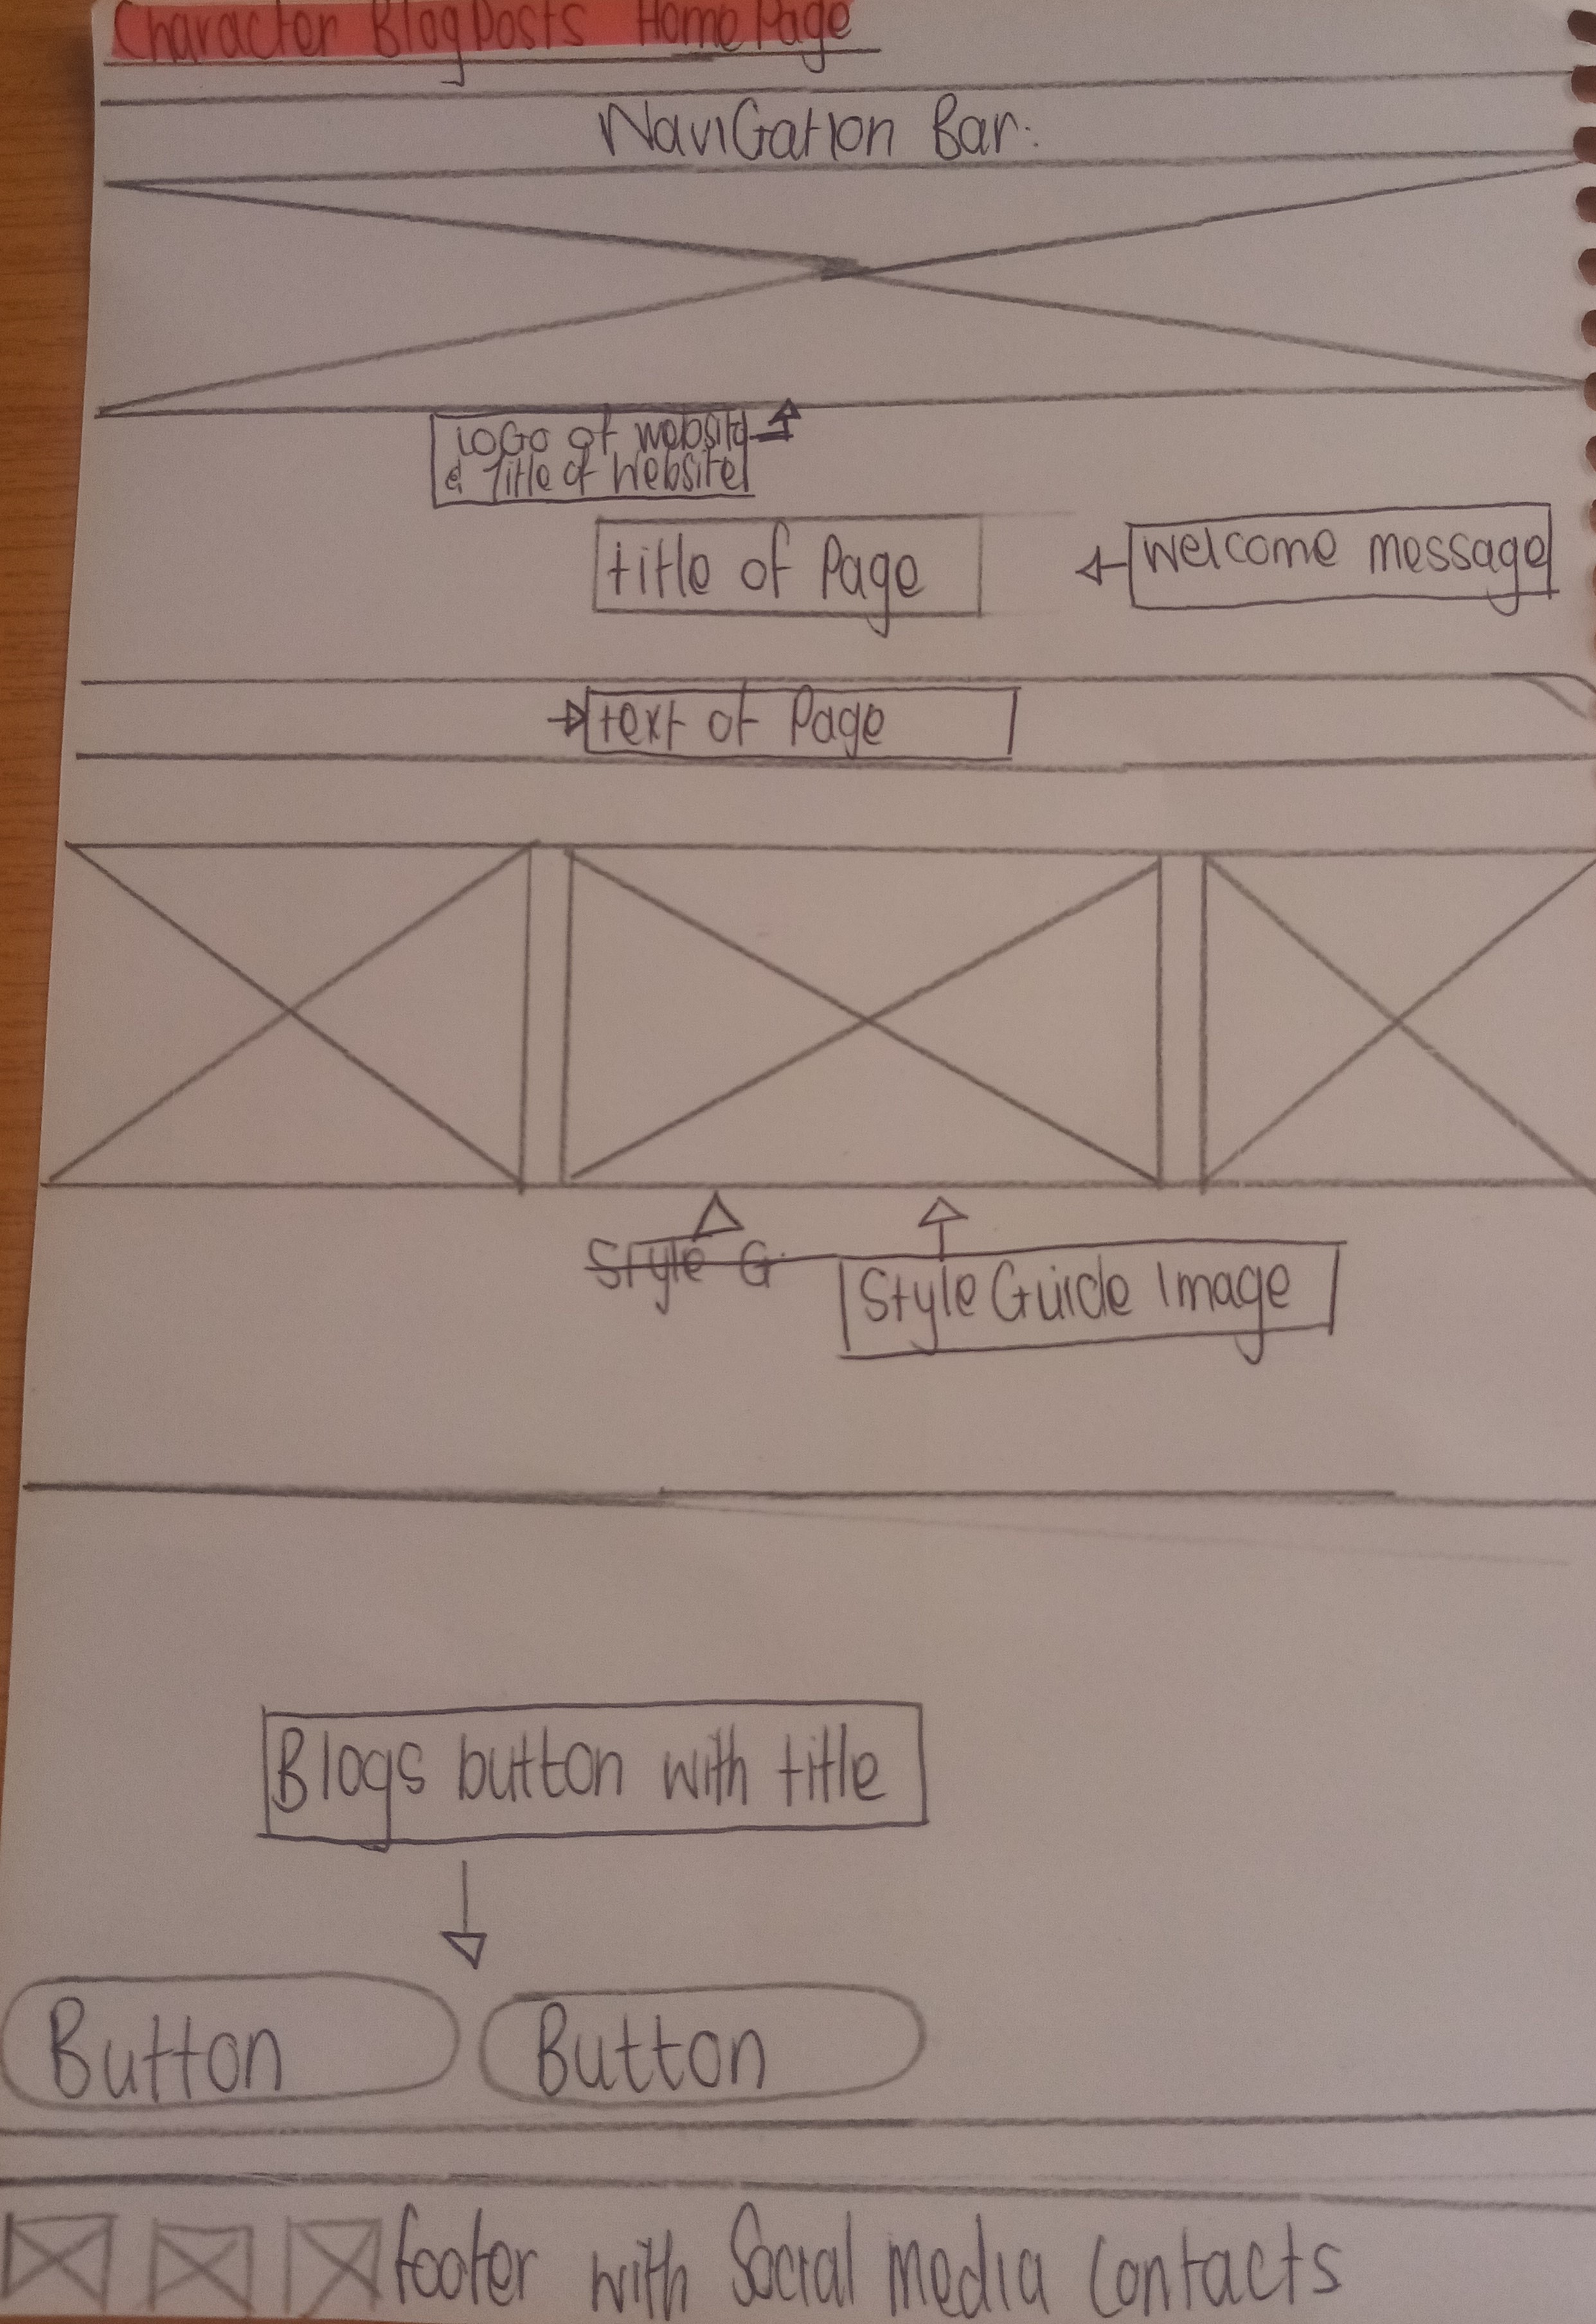 Character Blog Posts Home Page
Navigation Bar:
Logo of website
& Title of Website
title of Page
Welcome message
text of Page
Style G
Style Guide Image
Blogs button with title
Button
Button
footer with Social media contacts